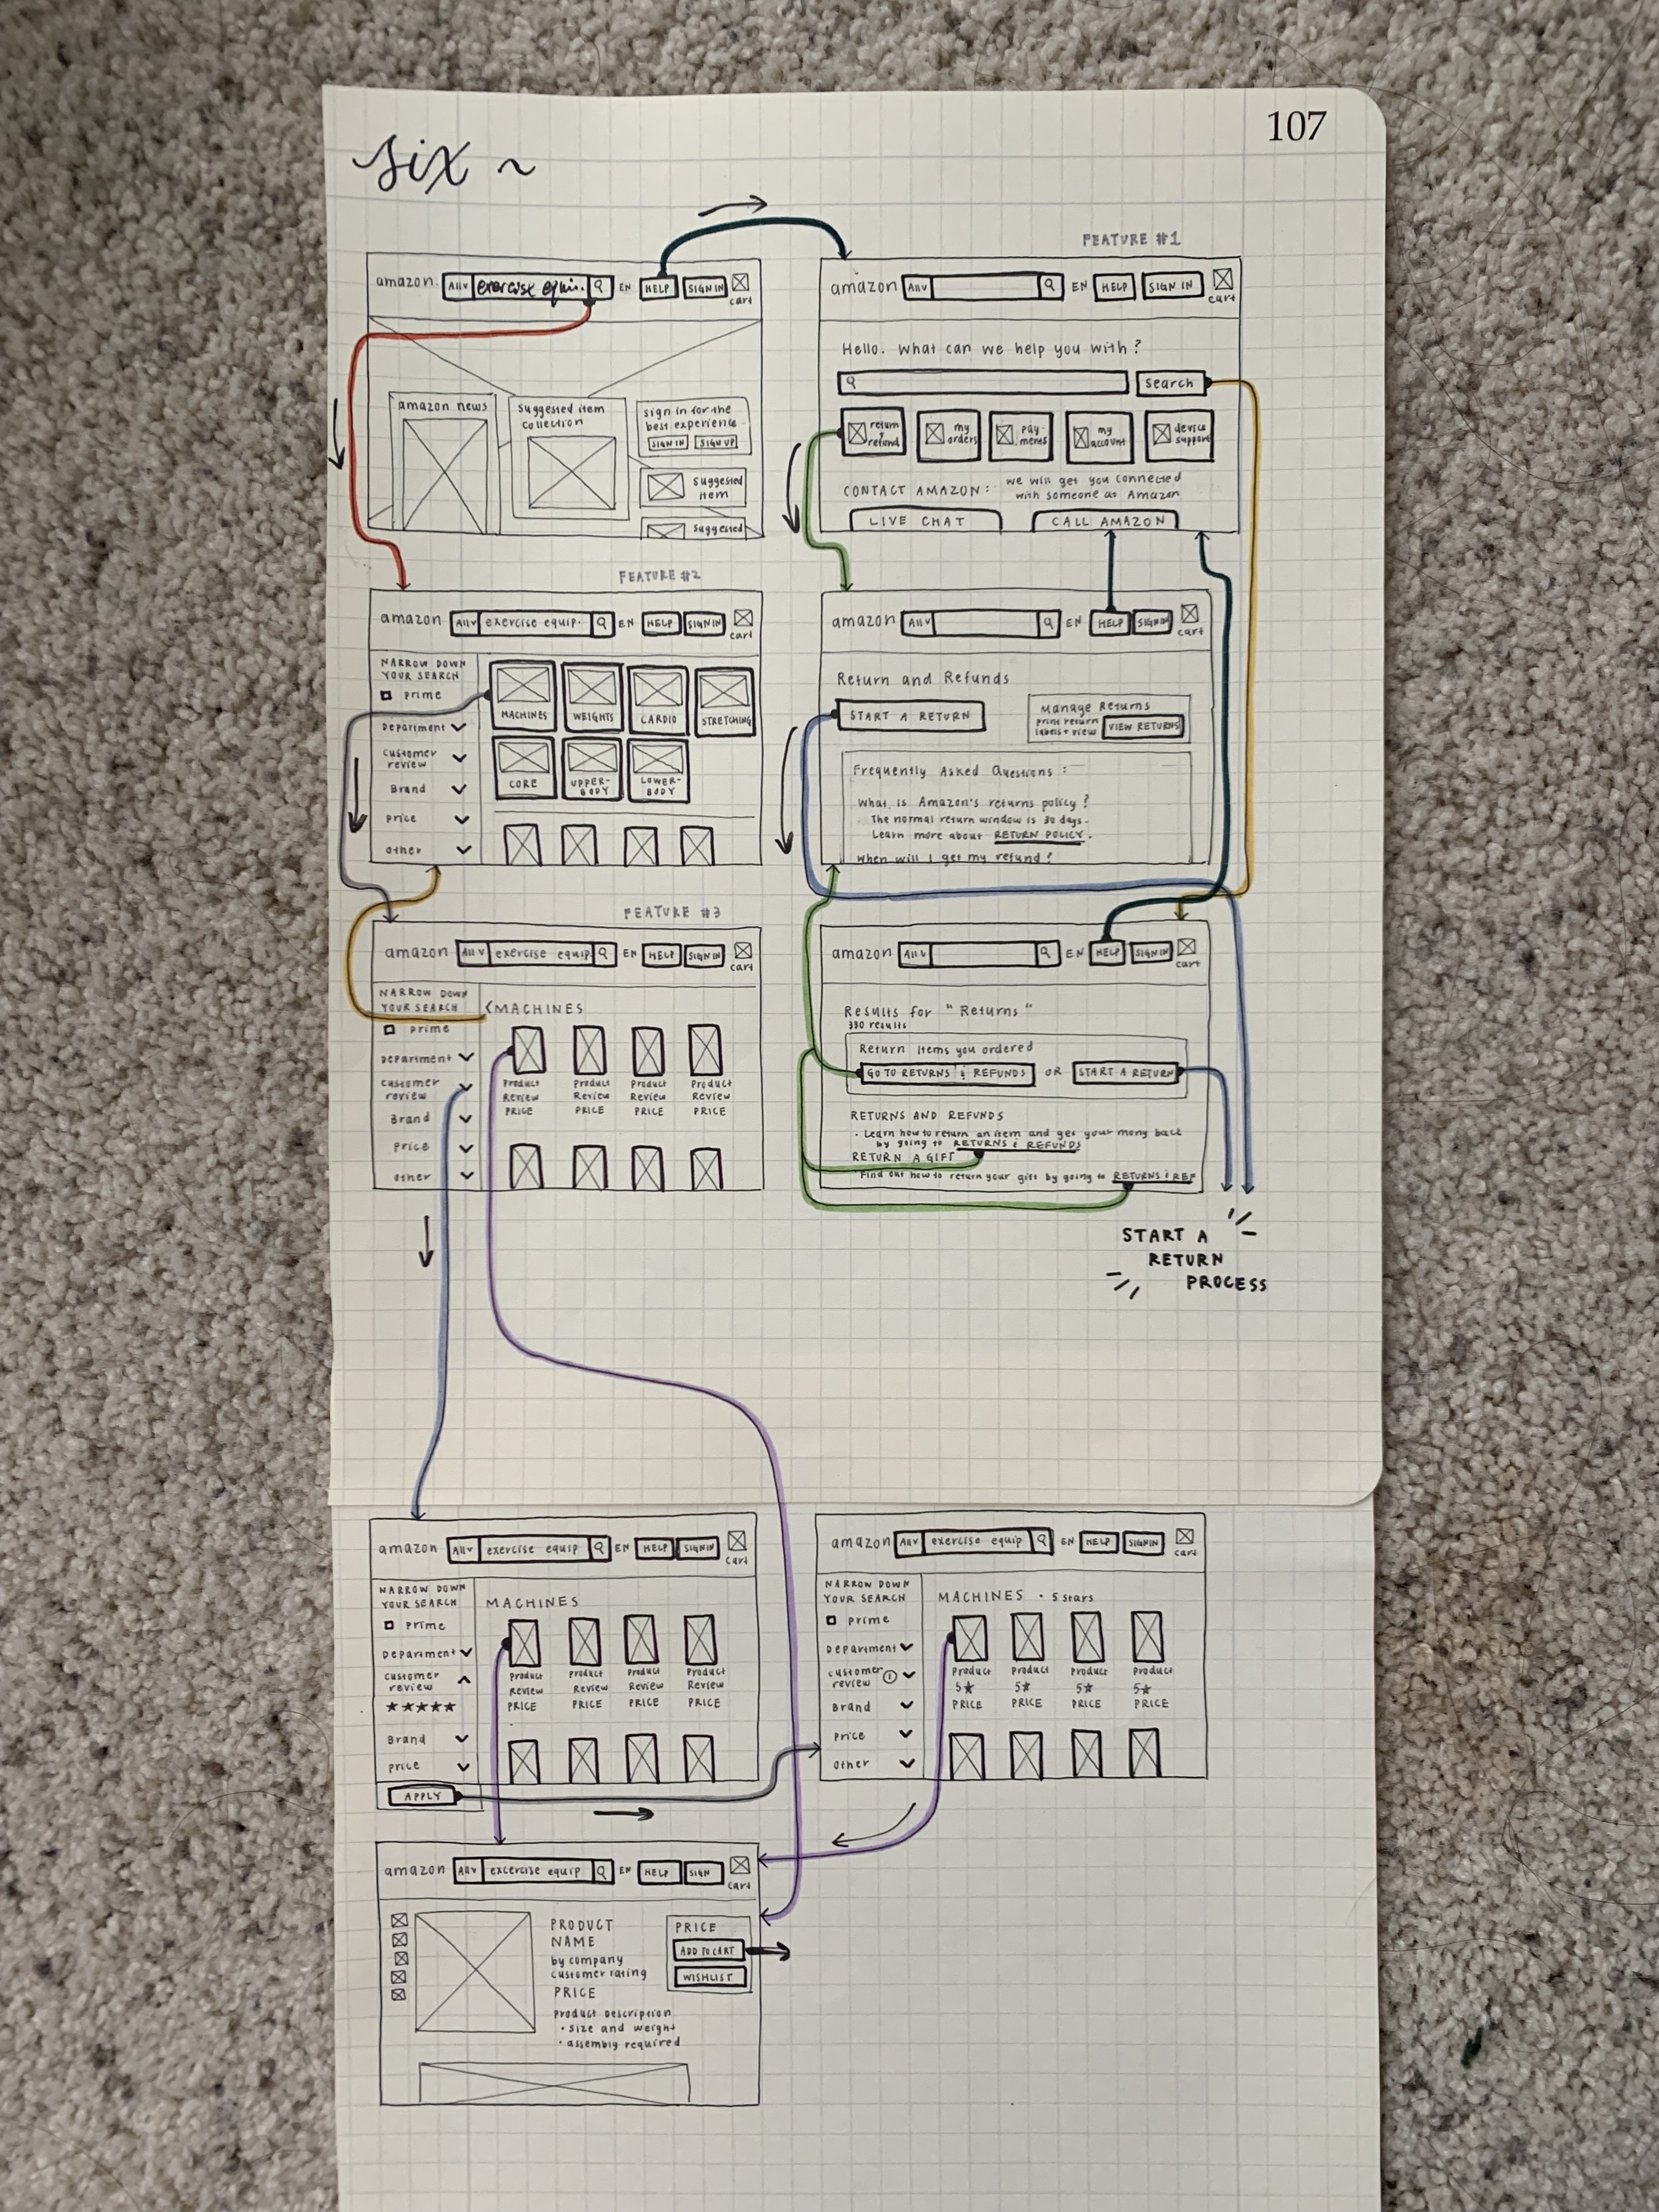 107
six ~
amazon. All v exercise equip. EN HELP SIGN IN cart
amazon news
suggested item
collection
sign in for the
best experience
SIGN IN SIGN UP
suggested
item
suggested
FEATURE #1
amazon All v EN HELP SIGN IN cart
Hello. What can we help you with?
search
return
refund
my
orders
pay-
ments
my
account
device
support
CONTACT AMAZON: we will get you connected
with someone at Amazon
LIVE CHAT CALL AMAZON
FEATURE #2
amazon All v exercise equip. EN HELP SIGN IN cart
NARROW DOWN
YOUR SEARCH
prime
Department
customer
review
Brand
price
other
MACHINES WEIGHTS CARDIO STRETCHING
CORE UPPER-
BODY LOWER-
BODY
amazon All v EN HELP SIGN IN cart
Return and Refunds
START A RETURN
Manage Returns
print return
labels + view VIEW RETURNS
Frequently Asked Questions :
What is Amazon's returns policy?
The normal return window is 30 days.
Learn more about RETURN POLICY.
When will I get my refund?
FEATURE #3
amazon All v exercise equip. EN HELP SIGN IN cart
NARROW DOWN
YOUR SEARCH
prime
Department
customer
review
Brand
price
other
<MACHINES
Product Product Product Product
Review Review Review Review
PRICE PRICE PRICE PRICE
amazon All v EN HELP SIGN IN cart
Results for "Returns"
330 results
Return items you ordered
GO TO RETURNS & REFUNDS OR START A RETURN
RETURNS AND REFUNDS
· Learn how to return an item and get your mony back
by going to RETURNS & REFUNDS
RETURN A GIFT
Find out how to return your gift by going to RETURNS & REF
START A
RETURN
PROCESS
amazon All v exercise equip EN HELP SIGN IN cart
NARROW DOWN
YOUR SEARCH
prime
Department
customer
review
★★★★★
Brand
price
APPLY
MACHINES
Product Product Product Product
Review Review Review Review
PRICE PRICE PRICE PRICE
amazon All v exercise equip EN HELP SIGN IN cart
NARROW DOWN
YOUR SEARCH
prime
Department
customer
review 1
Brand
price
other
MACHINES · 5 stars
Product Product Product Product
5★ 5★ 5★ 5★
PRICE PRICE PRICE PRICE
amazon All v excercise equip EN HELP SIGN cart
PRODUCT
NAME
by company
customer rating
PRICE
product Description
· size and weight
· assembly required
PRICE
ADD TO CART
WISHLIST